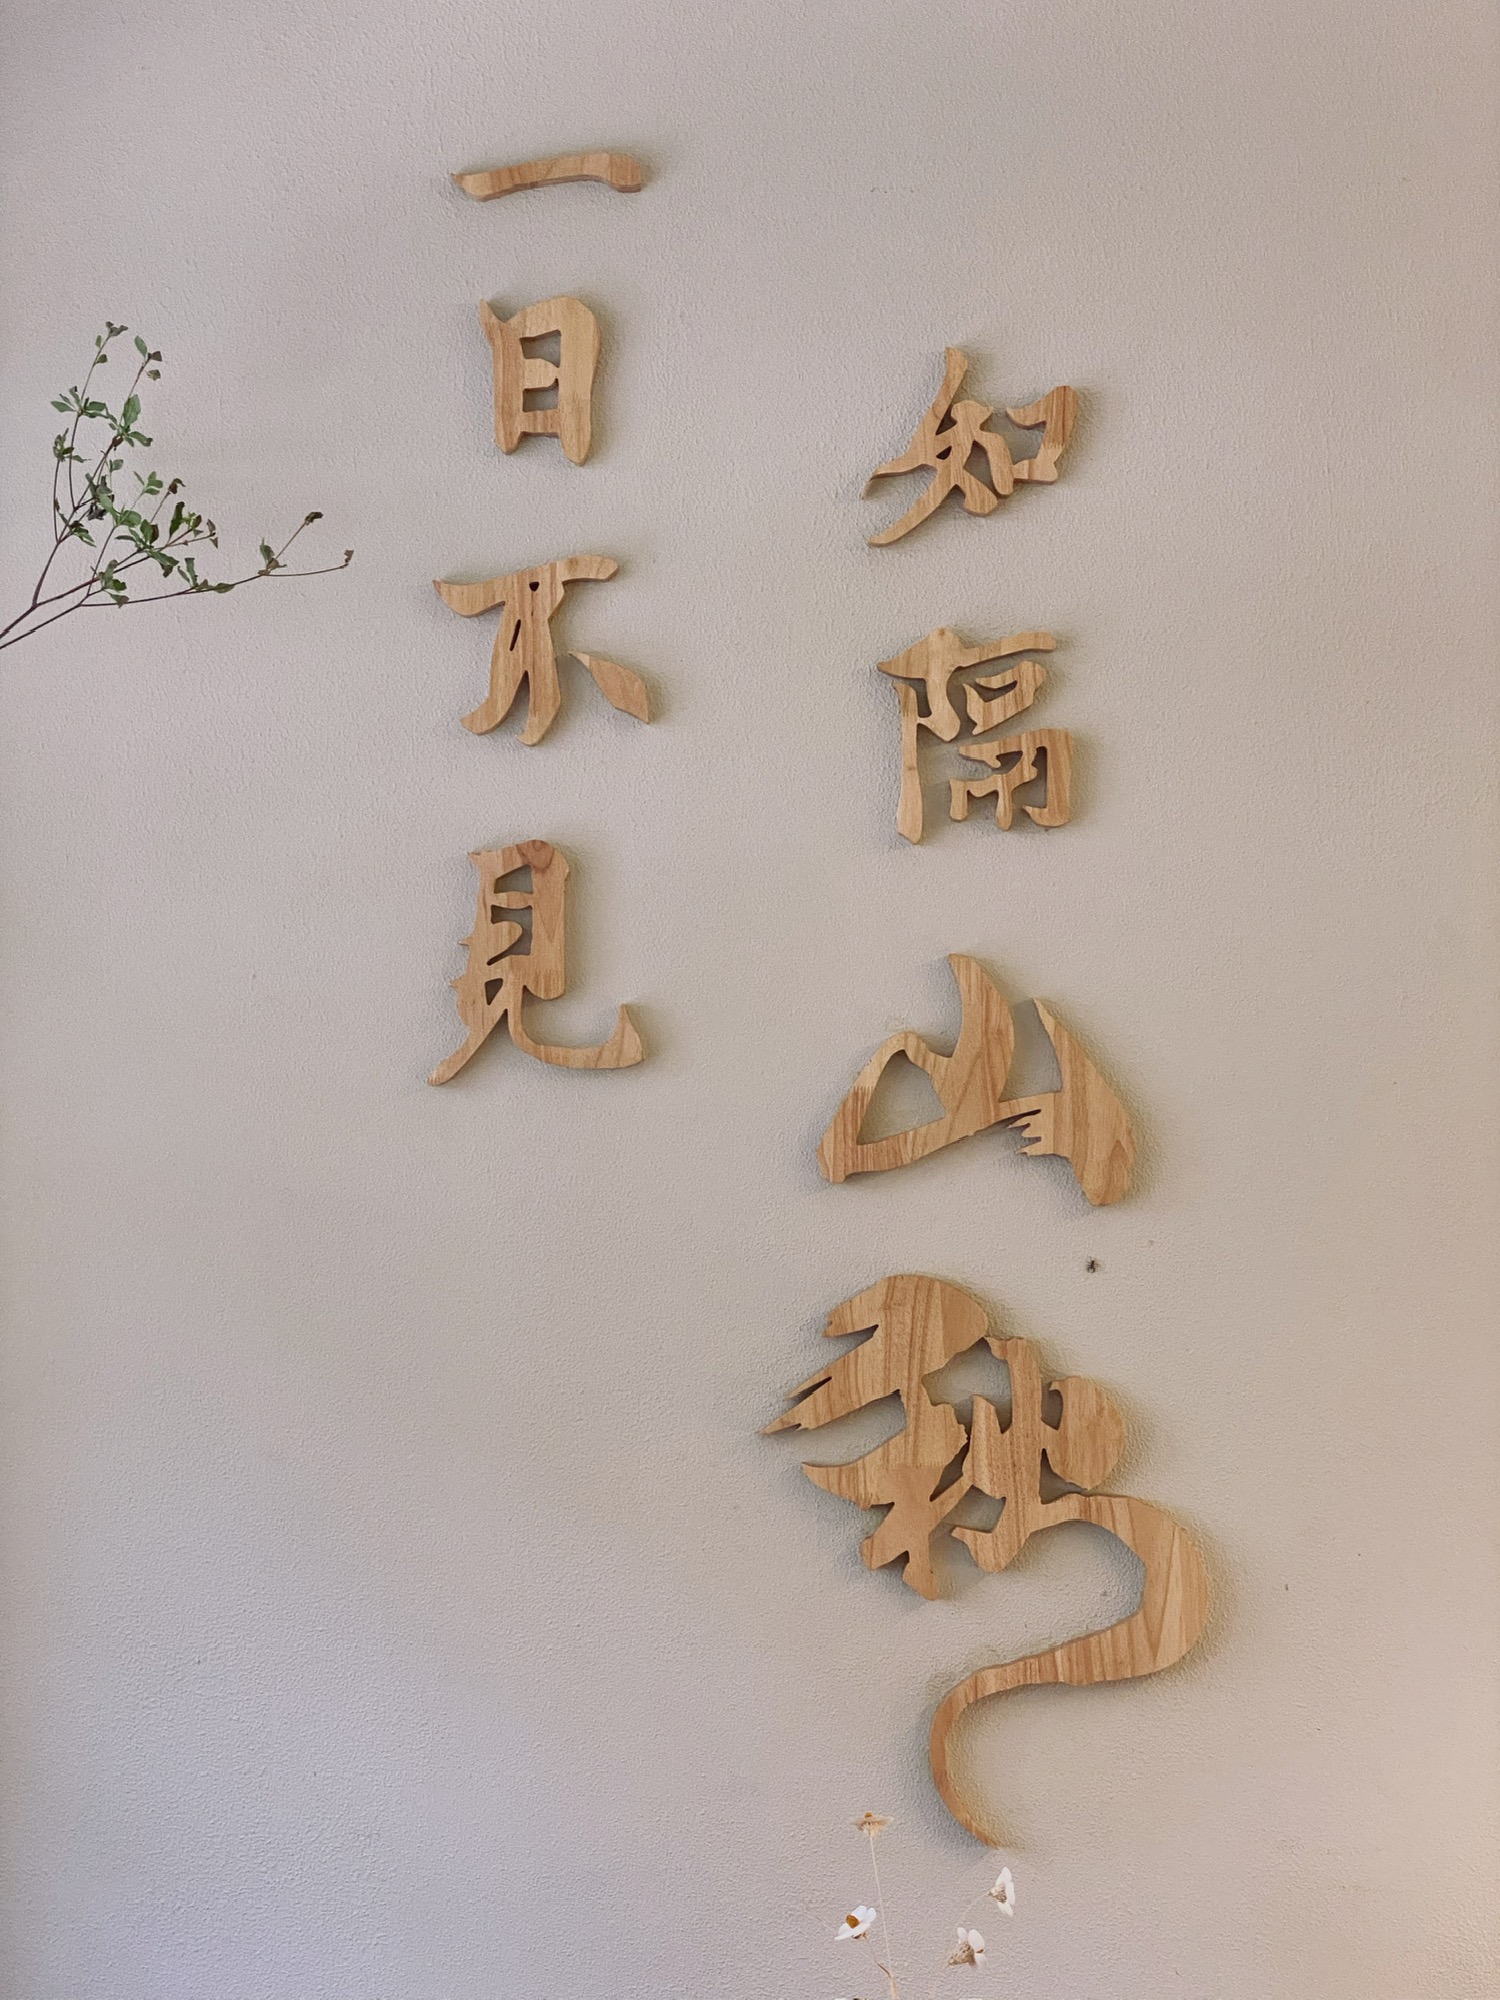 一日不見
如隔山秋